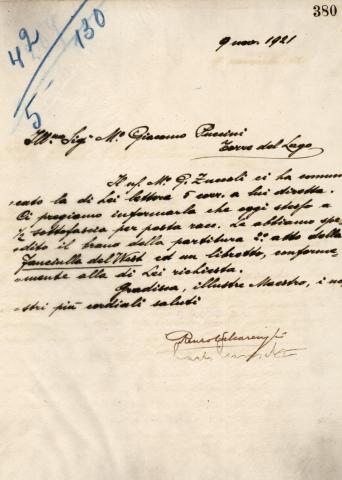 380
42
130
5
9 nov. 1921
Ill.mo Sig. Mo. Giacomo Puccini
Torre del Lago
Il ns/ Mo. G. Zuccoli ci ha comuni
cato la di Lei lettera 5 corr. a lui diretta.
Ci pregiamo informarla che oggi stesso a
½ sottofascia per posta racc. Le abbiamo spe
dito il brano della partitura 2º atto della
Fanciulla del West ed un libretto, conforme
mente alla di Lei richiesta.
Gradisca, illustre Maestro, i no
stri più cordiali saluti
Renzo Valcarenghi